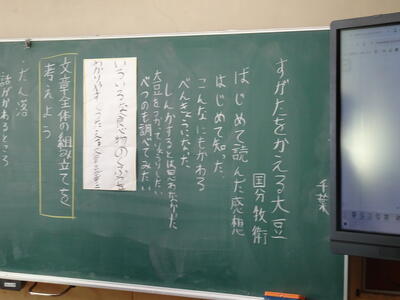 千葉
すがたをかえる大豆
国分牧衛
はじめて読んだ感想
はじめて知った。
こんなにもかわる
べんきょうになった
しんかするとは思わなかった
大豆を
べつのも調べてみたい
いろいろな食物の
文章全体の組み立てを
考えよう
・だん落
話がかわるところ